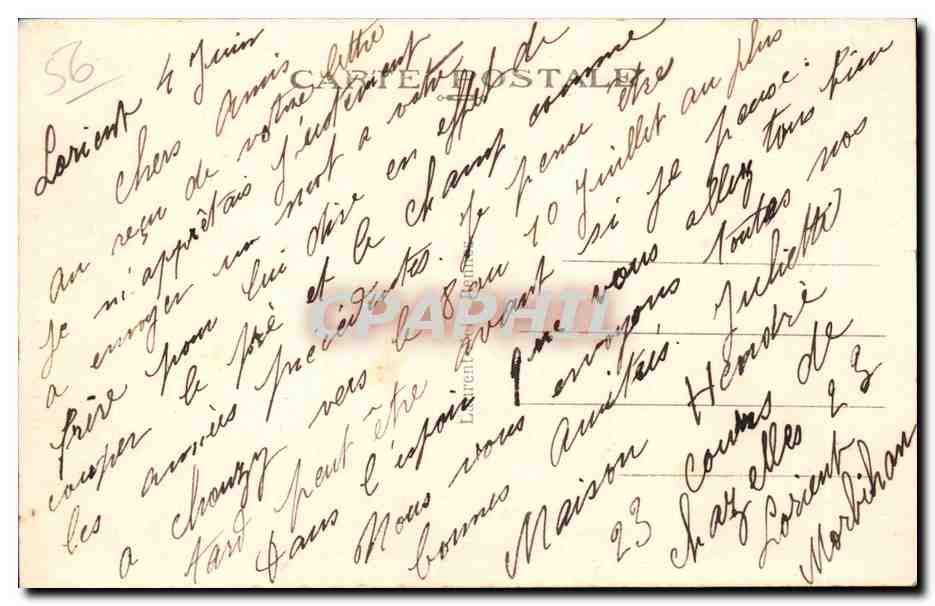 56
CARTE POSTALE
Lorient 4 Juin
Chers Amis
au reçu de votre lettre
Je m'apprêtais justement
a envoyer un mot a votre
frère pour lui dire en effet de
couper le pré et le champ comme
les années précédentes. Je pense être
a Chouzy vers le 8 ou 10 Juillet au plus
tard peut être avant si je pense.
Dans l'espoir que vous allez tous bien
Nous vous envoyons toutes nos
bonnes amitiés. Juliette
Maison Hendré
23 Cours de
Chazelles 23
Lorient
Morbihan
Laurent
CPARPHIL